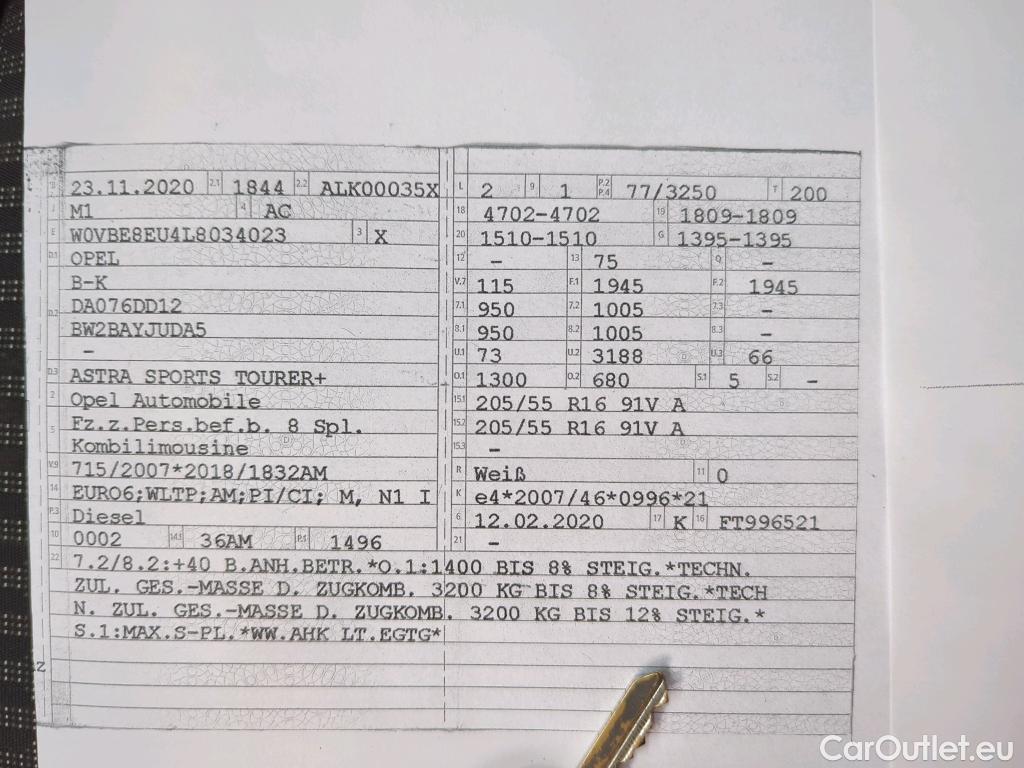 B 23.11.2020 2.1 1844 2.2 ALK00035X
J M1 4 AC
E W0VBE8EU4L8034023 3 X
D.1 OPEL
B-K
D.2 DA076DD12
BW2BAYJUDA5
–
D.3 ASTRA SPORTS TOURER+
2 Opel Automobile
5 Fz.z.Pers.bef.b. 8 Spl.
Kombilimousine
V.9 715/2007*2018/1832AM
14 EURO6;WLTP;AM;PI/CI; M, N1 I
P.3 Diesel
10 0002 14.1 36AM P.1 1496
L 2 9 1 P.2 P.4 77/3250 T 200
18 4702-4702 19 1809-1809
20 1510-1510 G 1395-1395
12 – 13 75 Q –
V.7 115 F.1 1945 F.2 1945
7.1 950 7.2 1005 7.3 –
8.1 950 8.2 1005 8.3 –
U.1 73 U.2 3188 U.3 66
O.1 1300 O.2 680 S.1 5 S.2 –
15.1 205/55 R16 91V A
15.2 205/55 R16 91V A
15.3 –
R Weiß 11 0
K e4*2007/46*0996*21
6 12.02.2020 17 K 16 FT996521
21 –
22 7.2/8.2:+40 B.ANH.BETR.*O.1:1400 BIS 8% STEIG.*TECHN.
ZUL. GES.-MASSE D. ZUGKOMB. 3200 KG BIS 8% STEIG.*TECH
N. ZUL. GES.-MASSE D. ZUGKOMB. 3200 KG BIS 12% STEIG.*
S.1:MAX.S-PL.*WW.AHK LT.EGTG*
CarOutlet.eu